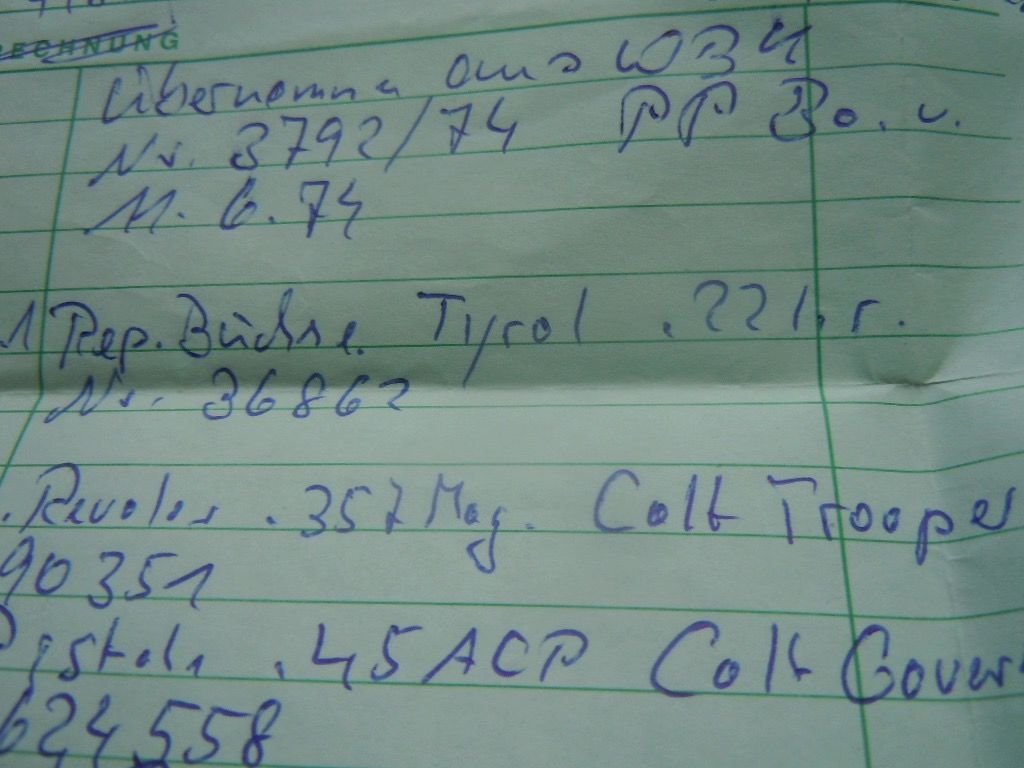 RECHNUNG
Übernomma aus WBK
Nr. 3792/74 PP Bo. v.
11. 6. 74
1 Rep. Büchse Tyrol .22 l. r.
Nr. 36862
Revolver .357 Mag. Colt Trooper
90351
Pistole .45 ACP Colt Govern
624558